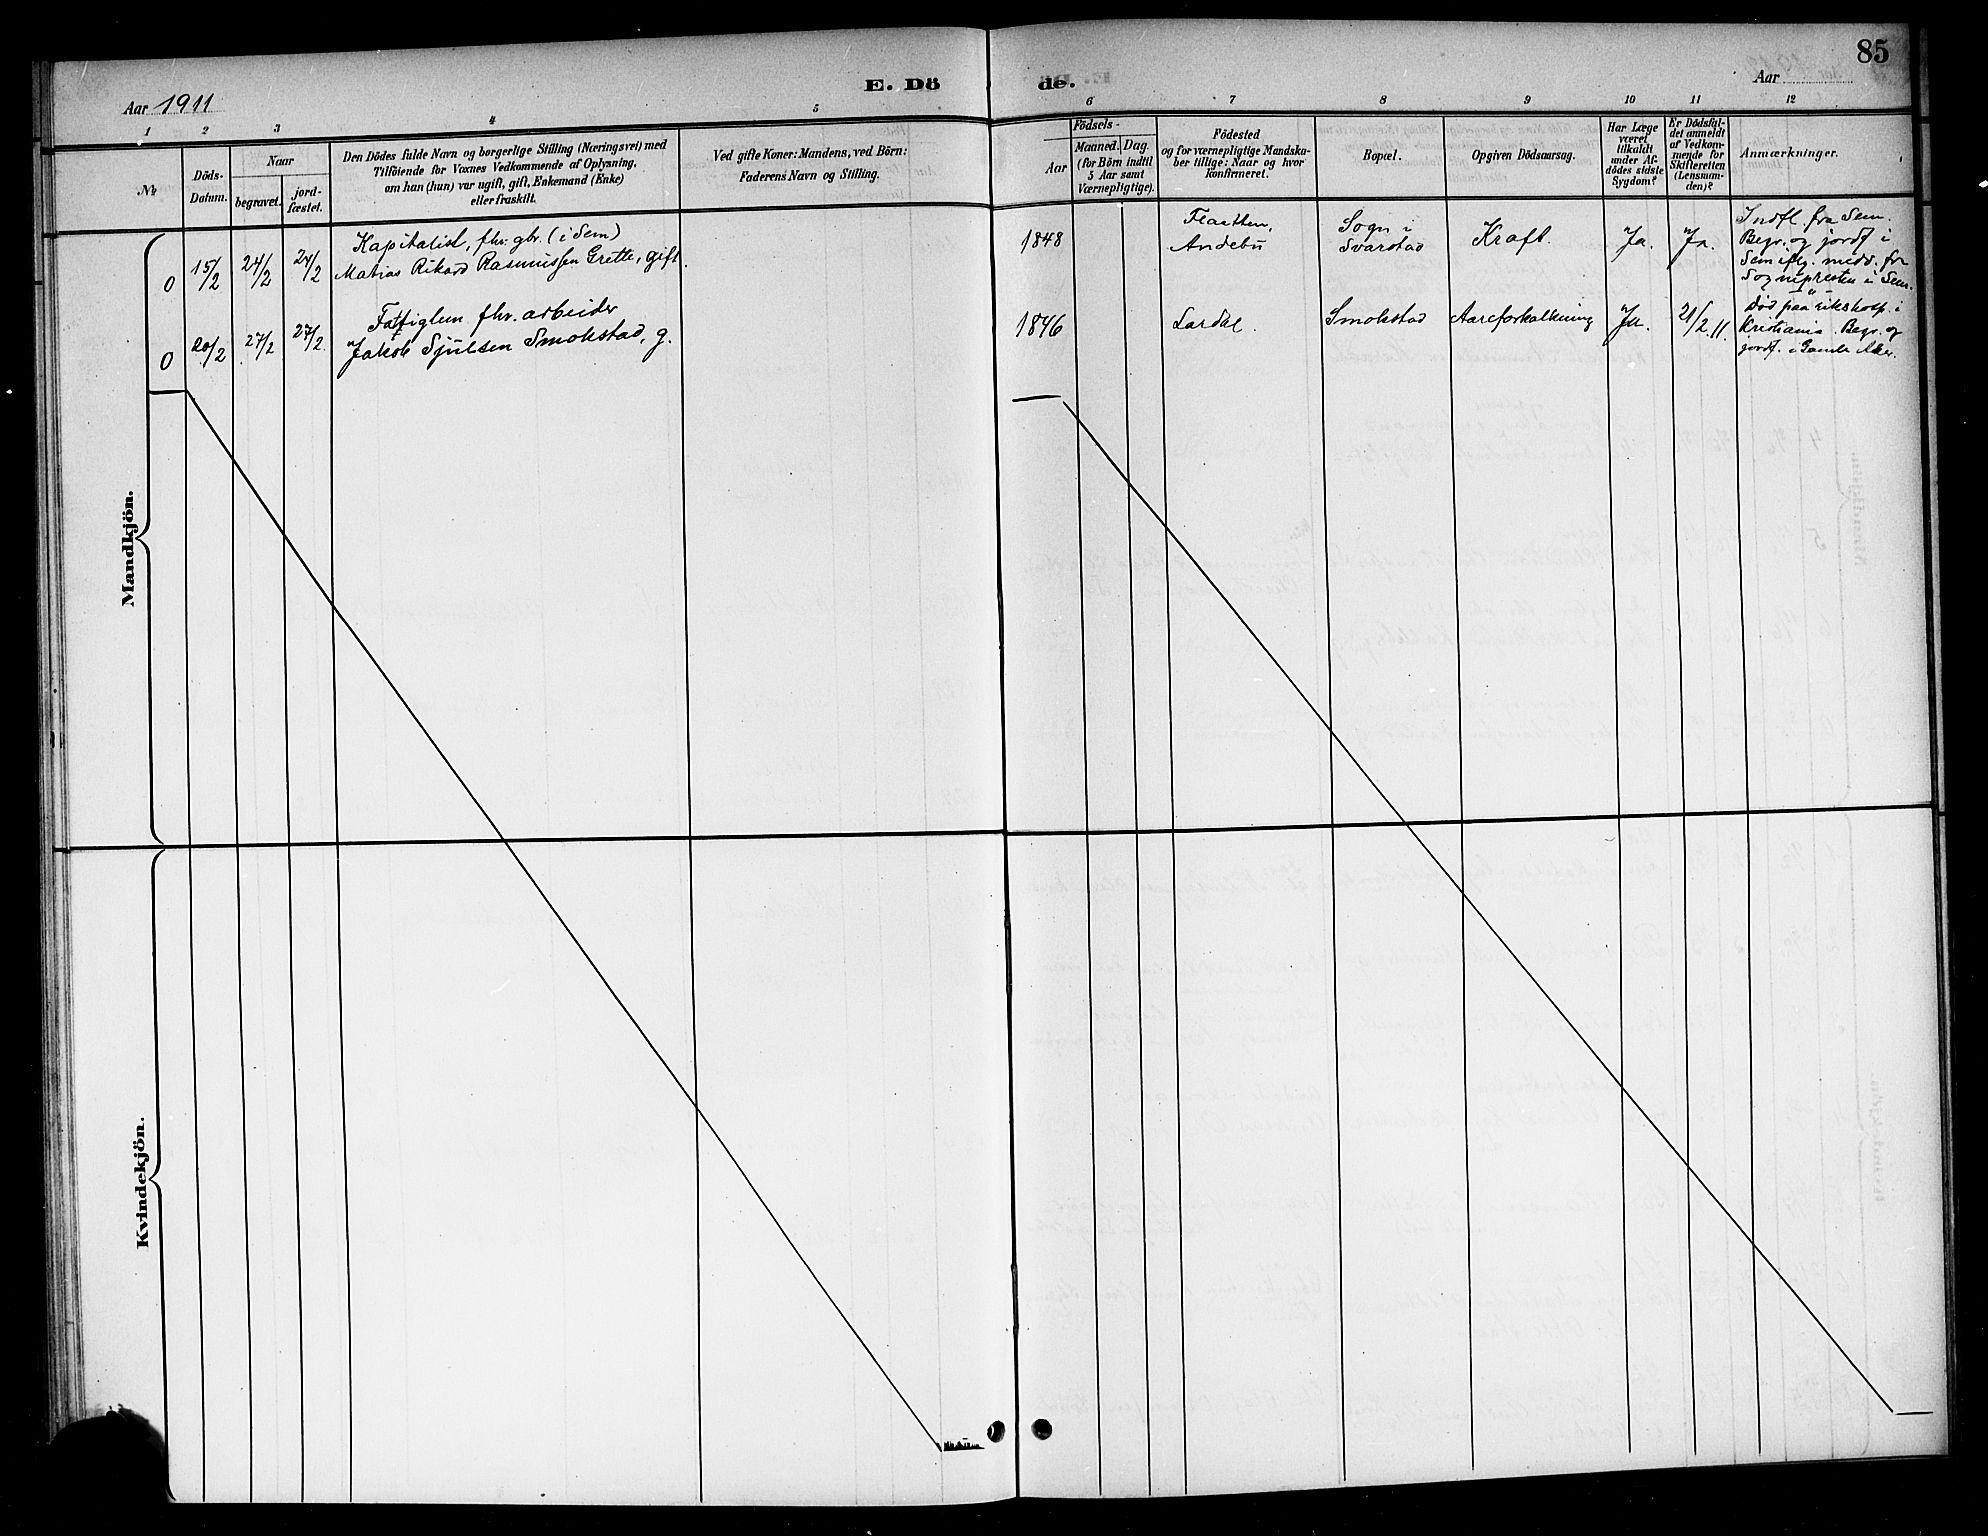 85
E. Dö
de.
Aar 1911
Aar
1 2 3 4 5
6 7 8 9 10 11 12
№
Döds-
Datum.
Naar
begravet.
jord-
fæstet.
Den Dödes fulde Navn og borgerlige Stilling (Næringsvei) med
Tilföiende for Voxnes Vedkommende af Oplysning,
om han (hun) var ugift, gift, Enkemand (Enke)
eller fraskilt.
Ved gifte Koner: Mandens, ved Börn:
Faderens Navn og Stilling.
Födsels-
Aar
Maaned. Dag.
(for Börn indtil
5 Aar samt
Værnepligtige).
Födested
og for værnepligtige Mandska-
ber tillige: Naar og hvor
konfirmeret.
Bopæl.
Opgiven Dödsaarsag.
Har Læge
været
tilkaldt
under Af-
dödes sidste
Sygdom?
Er Dödsfal-
det anmeldt
af Vedkom-
mende for
Skifteretten
(Lensman-
den)?
Anmærkninger.
Mandkjön.
0 15/2 24/2 24/2
Kapitalist, fhv. gbr. (i Sem)
Matias Rikard Rasmussen Grette, gift.
1848
Flaatten,
Andebu
Sogn i
Svarstad
Kraft.
Ja.
Ja.
Indfl. fra Sem.
Begr. og jordf i
Sem iflg. medd. fra
Sognepresten i Sem.
0 20/2 27/2 27/2
Fattiglem fhv. arbeider
Jakob Sjulsen Smokstad, g.
1846
Lardal.
Smokstad
Aareforkalkning
Ja.
21/2 11.
Död paa rikshosp. i
Kristiania. Begr. og
jordf. i Gamle Aker.
Kvindekjön.